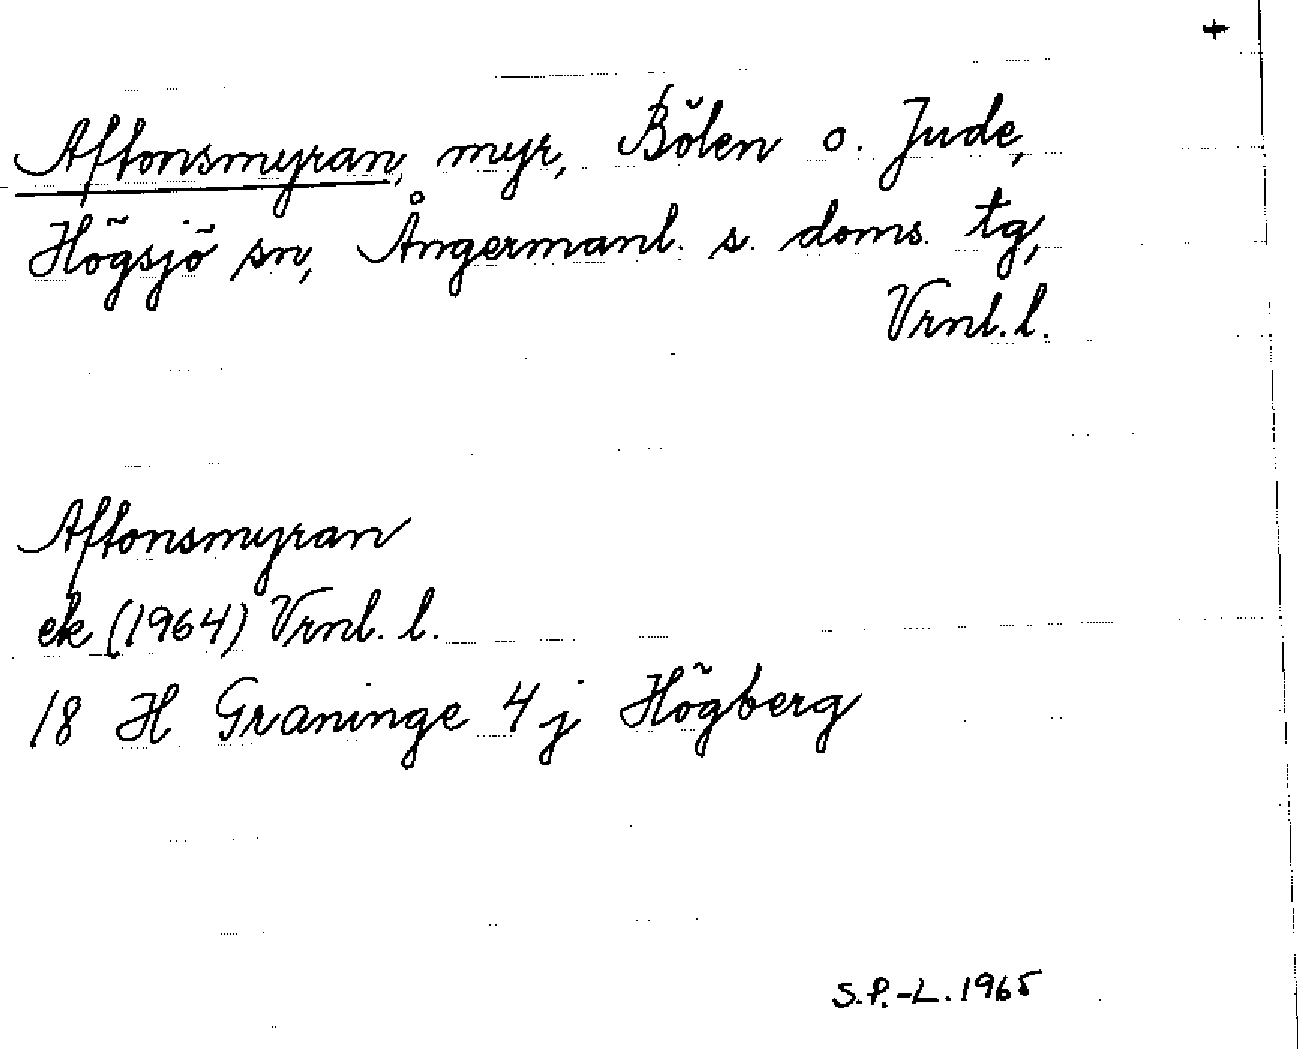 +
Aftonsmyran, myr, Bölen o. Jude,
Högsjö sn, Ångermanl. s. doms. tg,
Vrnl. l.
Aftonsmyran
ek (1964) Vrnl. l.
18 H Graninge 4 j Högberg
S.P.-L. 1965